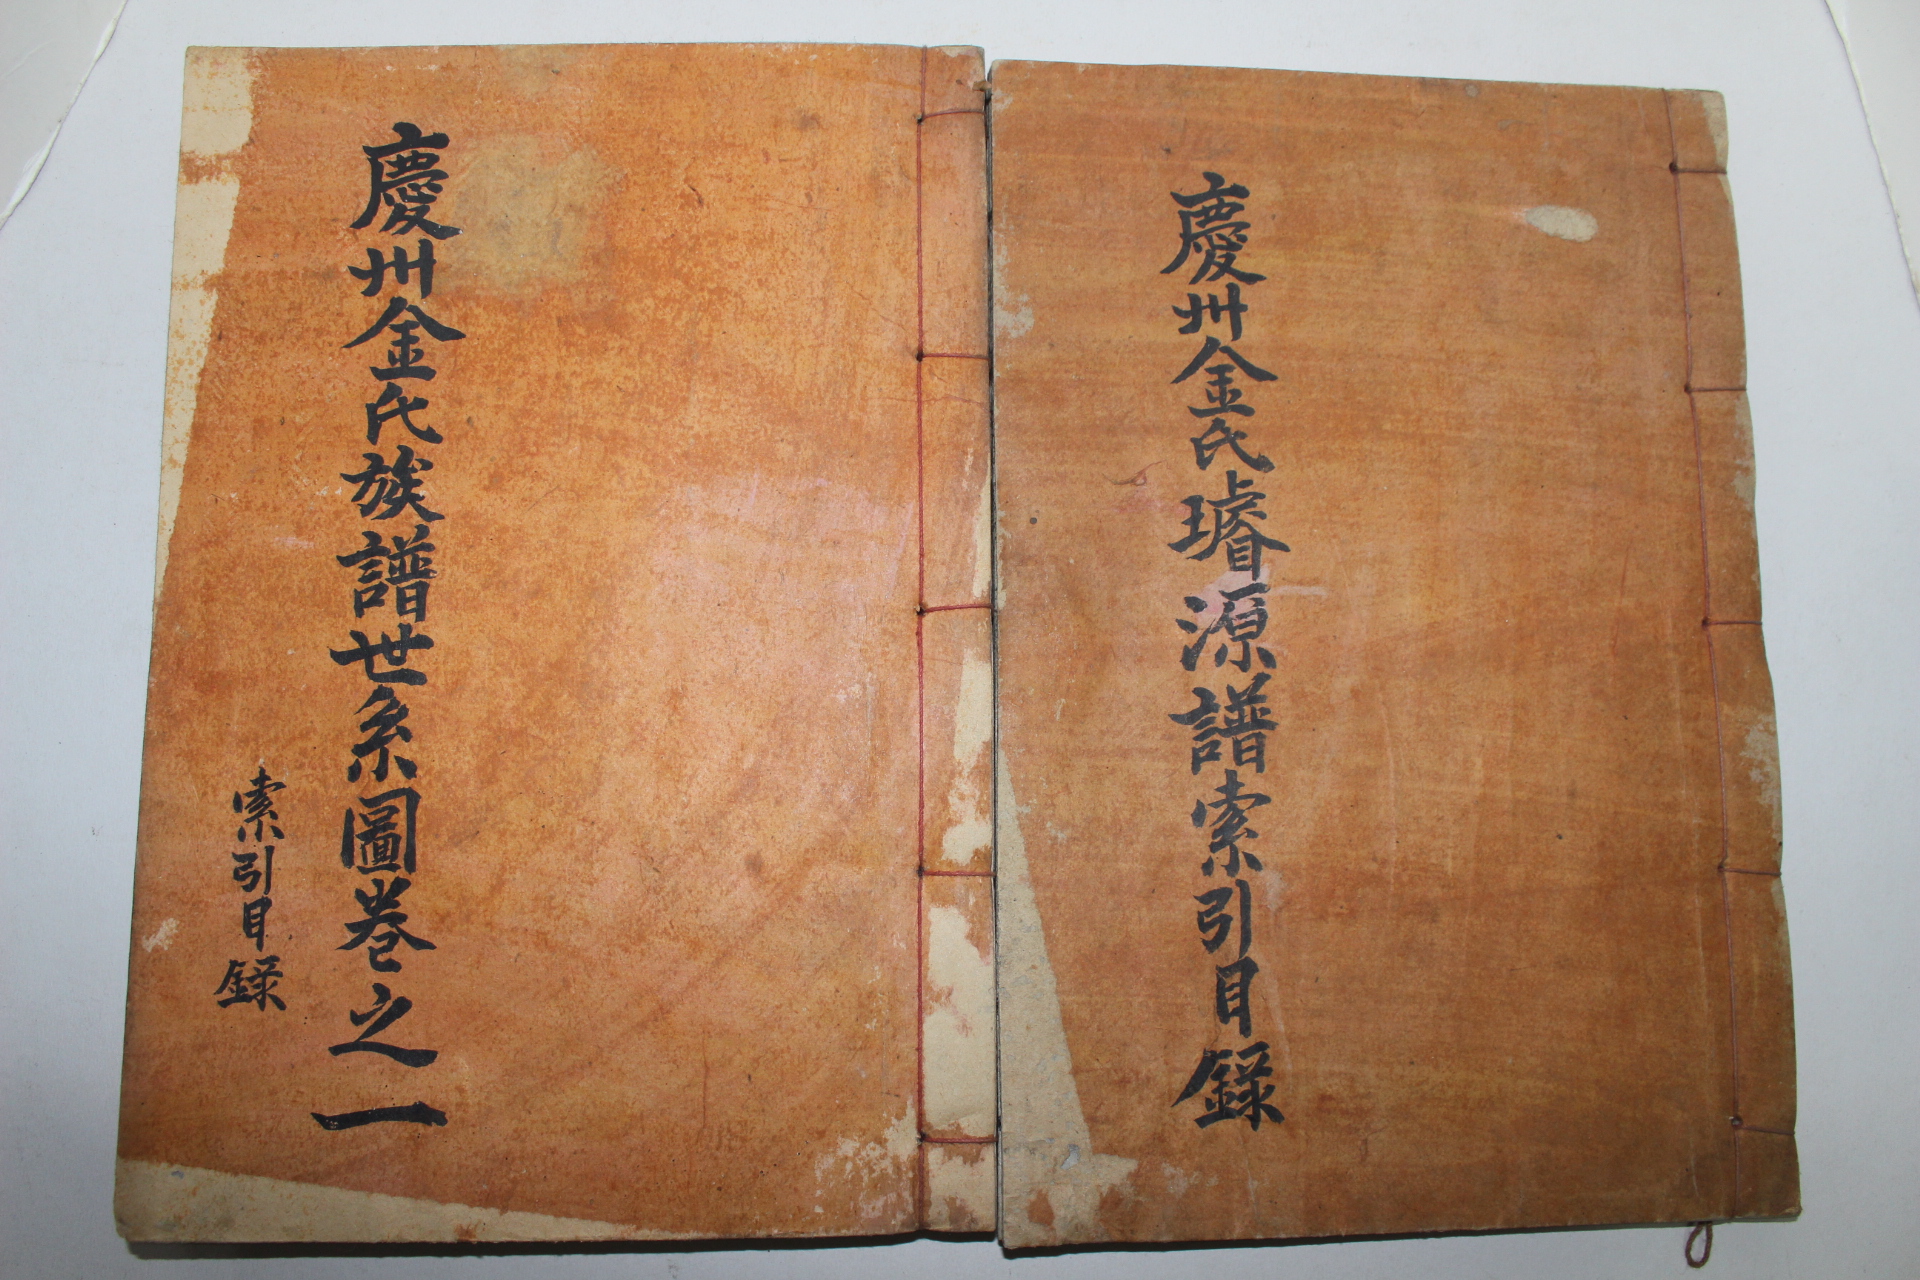 慶州金氏璿源譜索引目録
慶州金氏族譜世系圖巻之一
索引目録